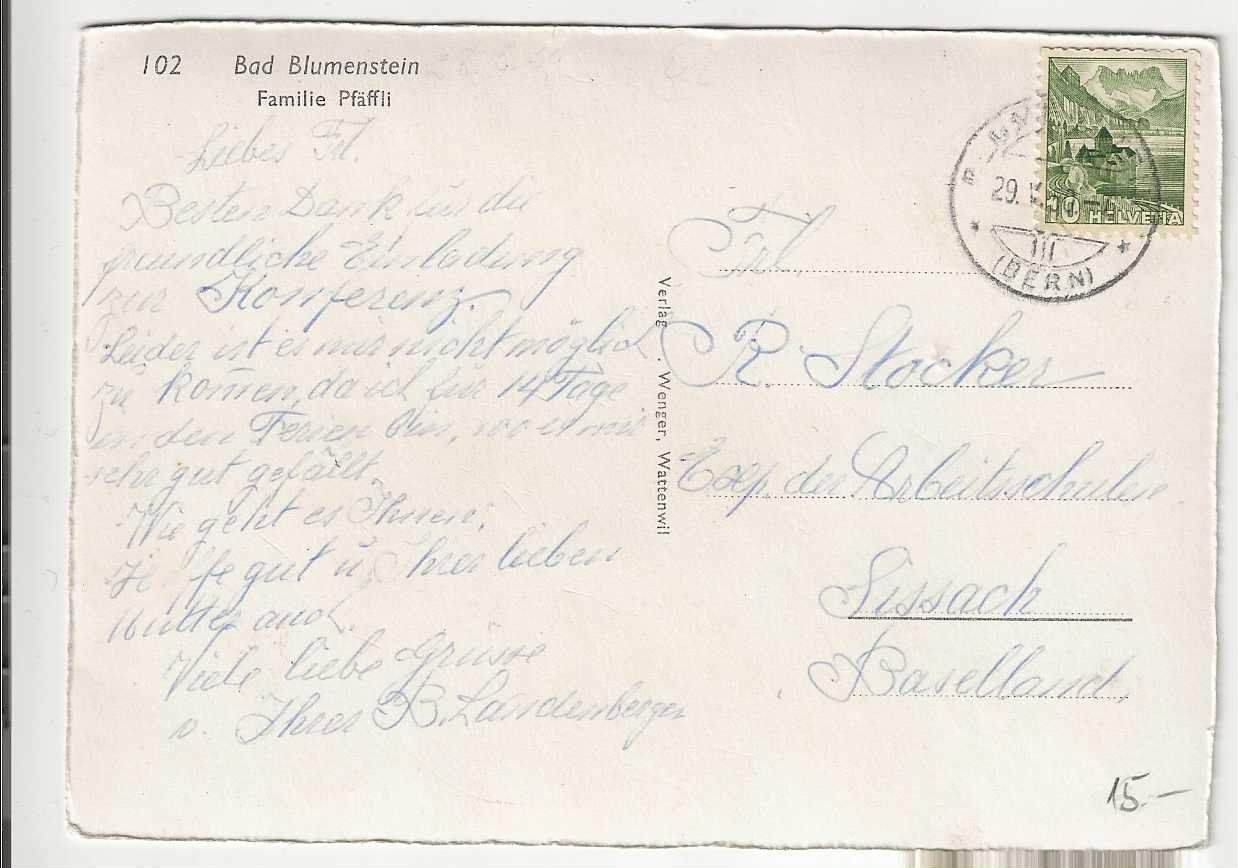 102 Bad Blumenstein
Familie Pfäffli
Liebes Frl.
Besten Dank für die
freundliche Einladung
zur Konferenz.
Leider ist es mir nicht möglich
zu kom̄en, da ich für 14 Tage
in den Ferien bin, wo es mir
sehr gut gefällt.
Wie geht es Ihnen,
gut u. Ihrer lieben
Mutter auch.
Viele liebe Grüsse
v. Ihrer B. Landenberger
Verlag . Wenger, Wattenwil
HELVETIA
29.
III
(BERN)
Frl.
R. Stocker
der Arbeitsschulen
Sissach
Baselland.
15.–